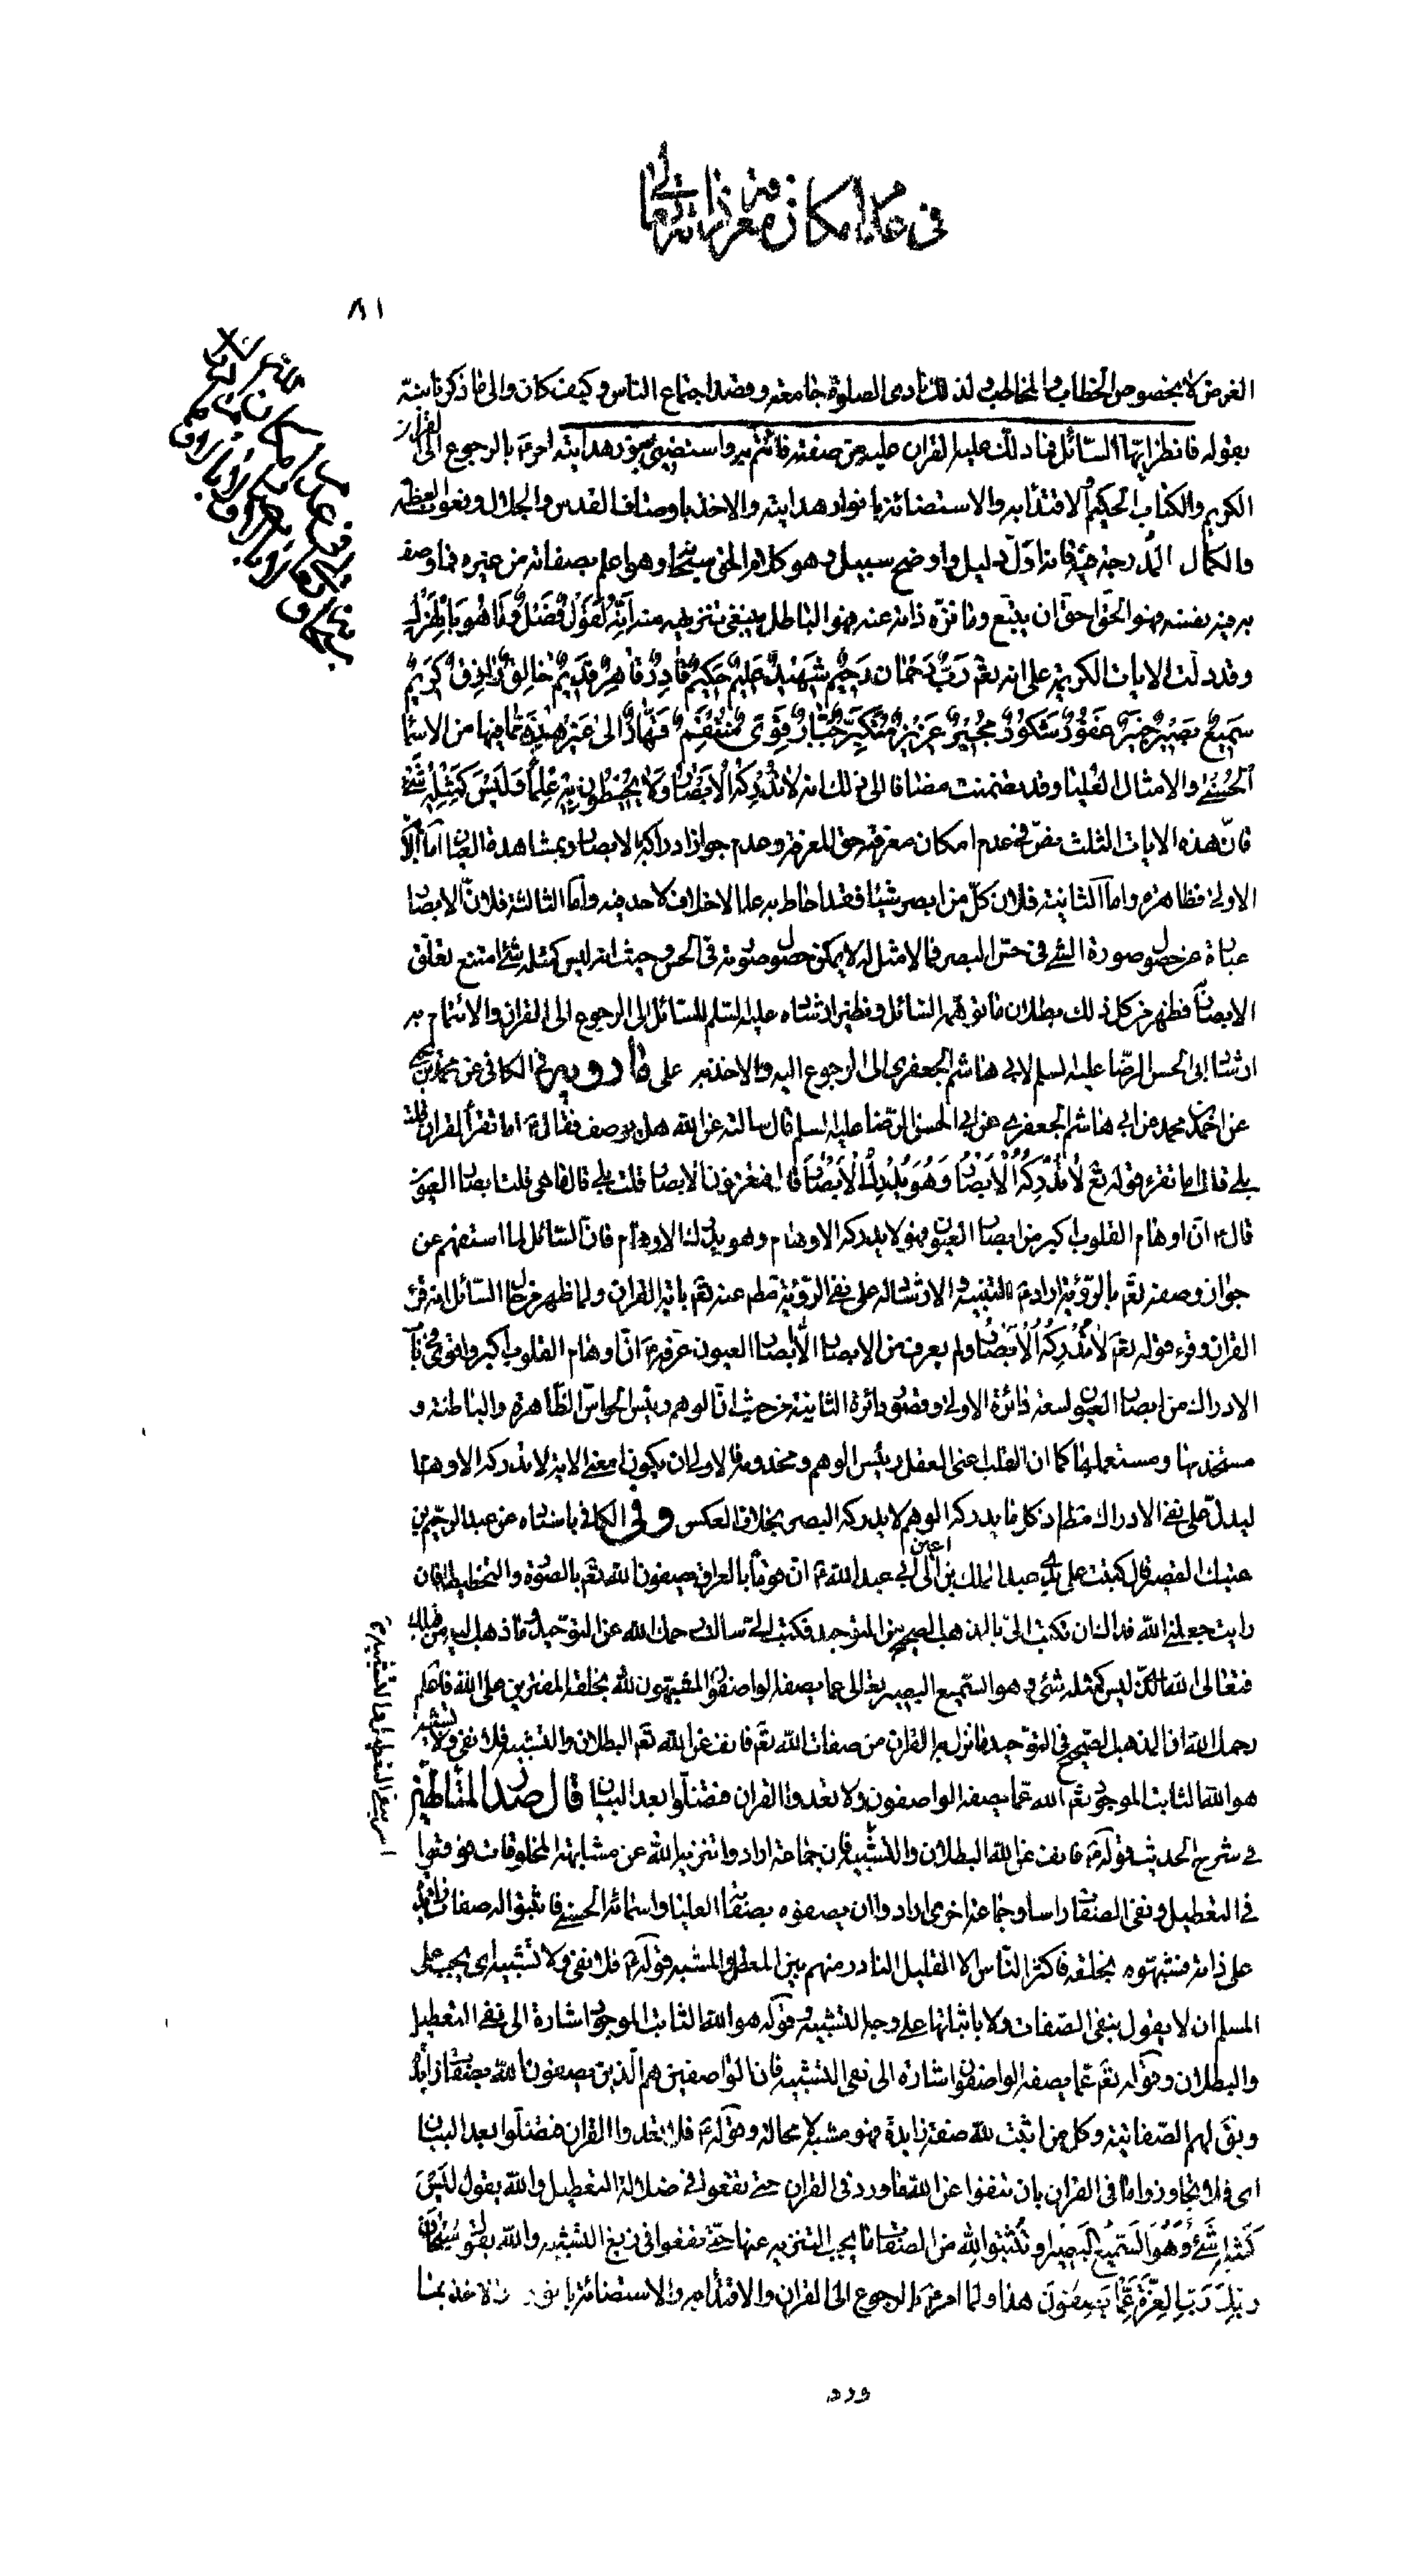 في عدم امكان معرفة ذاته تعالى
٨١
الغرض كان بخصوص الخطاب والمخاطب ولذلك نادى الصلوة جامعة وقصد اجتماع الناس وكيف كان والى ما ذكرنا نبّه
بقوله فانظر ايّها السّائل فما دلّك عليه القران عليه من صفته فائتمّ به واستضئ بنور هدايته امره بالرجوع الى القران
الكريم والكتاب الحكيم والاقتداء به والاستضائة بانوار هدايته والاخذ باوصاف القدس والجلال ونعوت العظمة
والكمال المدرجة فيه فانه ادلّ دليل واوضح سبيل وهو كلام الحق سبحانه وهو اعلم بصفاته من غيره فما وصف
به فيه نفسه فهو الحقّ احقّ ان يتبّع وما نزّه ذاته عنه فهو الباطل ينبغى تنزيهه منه اَنّه لَقَوْلٌ فَصْلٌ وَما هُوَ بِالْهَزْلِ
وقد دلت الايات الكريمة على انه تعم رَبٌّ رَحمان رَحِيمٌ شَهِيدٌ عَلِيمٌ حَكِيمٌ قادِرٌ قاهِرٌ قَدِيمٌ خالِقٌ رازِقٌ كَرِيمٌ
سَمِيعٌ بَصِيرٌ خَبِيرٌ غَفُورٌ شَكُورٌ مُجِيرٌ عَزِيزٌ مُتَكَبِّرٌ جَبّارٌ قَوِىٌّ مُنْتَقِمٌ قَهّارٌ الى غَيْرِ هذِهِ ممّا فيها من الاسماء
الحُسْنى والامثال العُليا وقد تضمنت مضافا الى ذلك انه لا تُدْرِكُهُ الْاَبْصارُ وَلا يُحِيطُونَ بِهِ عِلْماً وَلَيْسَ كَمِثْلِهِ شَىْءٌ
فانّ هذه الايات الثلث نصّ في عدم امكان معرفته حق المعرفة وعدم جواز ادراكه بالابصار وبمشاهدة العيان امّا
الاولى فظاهرة وامّا الثانية فلان كلّ من ابصر شيئا فقد احاط به علما لاخلاف لاحد فيه وامّا الثالثة فلانّ الابصار
عبارة عن حصول صورة الشئ في حسّ البصر فما لا مثل له لا يمكن حصول صورته في الحسّ وحيث انه ليس كمثله شئ امتنع تعلّق
الابصار به فظهر من كل ذلك بطلان ما توهّمه السّائل ونظير ارشاده عليه السّلم للسّائل الى الرجوع الى القران والائتمام به
ارشاد ابى الحسن الرضا عليه السلم لابى هاشم الجعفرى الى الرجوع اليه والاخذ به على ما رويه في الكافى عن محمد بن يحيى
عن احمد بن محمد عن ابى هاشم الجعفرى عن ابى الحسن الرّضا عليه السلم قال سالته عن الله هل يوصف فقال ع اما تقرأ القران قلت
بلى قال اما تقرء قوله تع لا تُدْرِكُهُ الْاَبْصارُ وَهُوَ يُدْرِكُ الْاَبْصارَ قال فتعرفون الابصار قلت بلى قال ما هى قلت ابصار العيون
قال ع انّ اوهام القلوب اكبر من ابصار العيون فهو لا يدركه الاوهام وهو يدرك الاوهام فانّ السّائل لما استفهم عن
جواز وصفه تعم بالرّؤية اراد ع التنبيه والارشاد له على نفى الرّؤية مطم عنه تعم باية القران ولما ظهر من حال السّائل انه قرء
القران وقرء قوله تعم لا تُدْرِكُهُ الْاَبْصارُ ولم يعرف من الابصار الّا ابصار العيون عرفه ع انّ اوهام القلوب اكبر واقوى في باب
الادراك من ابصار العيون لسعة دائرة الاولى وضيق دائرة الثانية من حيث انّ الوهم رئيس الحواسّ الظّاهرة والباطنة و
مستخدمها ومستعملها كما ان القلب اعنى العقل رئيس الوهم ومخدومه فالاولى ان يكون معنى الاية لا تدركه الاوهام
ليدلّ على نفى الادراك مطم اذ كل ما يدركه الوهم لا يدركه البصر بخلاف العكس وفى الكافى باسناده عن عبد الرحيم بن
عتيك القصير قال كتبت على يدى عبد الملك بن اعين الى ابى عبد الله ع ان قوماً بالعراق يصفون الله تعم بالصّورة والتخطيط فان
رايت جعلنى الله فداك ان تكتب الىّ بالمذهب الصحيح من التوحيد فكتب الىّ سالت رحمك الله عن التوحيد وما ذهب اليه من قبلك
فتعالى الله الّذى ليس كمثله شئ وهو السّميع البصير تعالى عما يصفه الواصفون المشبّهون لله بخلقه المفترين على الله فاعلم
رحمك الله انّ المذهب الصّحيح في التوحيد ما نزل به القران من صفات الله تعم فانف عن الله تعم البطلان والتشبيه فلا نفى ولا تشبيه
هو الله الثابت الموجود تعم الله عمّا يصفه الواصفون ولا تعدوا القران فتضلّوا بعد البيان قال صدر المتألهين
في شرح الحديث قوله ع فانف عن الله البطلان والتشبيه فان جماعة ارادوا تنزيه الله عن مشابهة المخلوقات فوقعوا
في التعطيل ونفى الصفات راسا وجماعة اخرى ارادوا ان يصفوه بصفاته العليا واسمائه الحسنى فاثبتوا له صفات زائدة
على ذاته فشبهوه بخلقه فاكثر النّاس الا القليل النادر منهم بين المعطل والمشبه قوله ع فلا نفى ولا تشبيه اى يجب على
المسلم ان لا يقول بنفى الصّفات ولا باثباتها على وجه التشبيه وقوله هو الله الثابت الموجود اشارة الى نفى التعطيل
والبطلان وقوله تعم عمّا يصفه الواصفون اشارة الى نفى التشبيه فان الواصفين هم الّذين يصفون الله بصفات زايدة
ويق لهم الصّفاتية وكل من اثبت لله صفة زايدة فهو مشبه لا محالة وقوله ع فلا تعدوا القران فتضلّوا بعد البيان
اى فلا تجاوزوا ما في القران بان تنفوا عن الله ما ورد في القران حتى تقعوا في ضلالة التعطيل والله يقول لَيْسَ
كَمِثْلِهِ شَىْءٌ وَهُوَ السَّمِيعُ الْبَصِيرُ او تُثبتوا لله من الصّفات ما يجب التنزيه عنها حتّى تقعوا في زيغ التشبيه والله يقول سُبْحانَ
رَبِّكَ رَبِّ الْعِزَّةِ عَمّا يَصِفُونَ هذا ولما امره ع بالرجوع الى القران والاقتداء به والاستضائة بانواره والاخذ بما
ورد